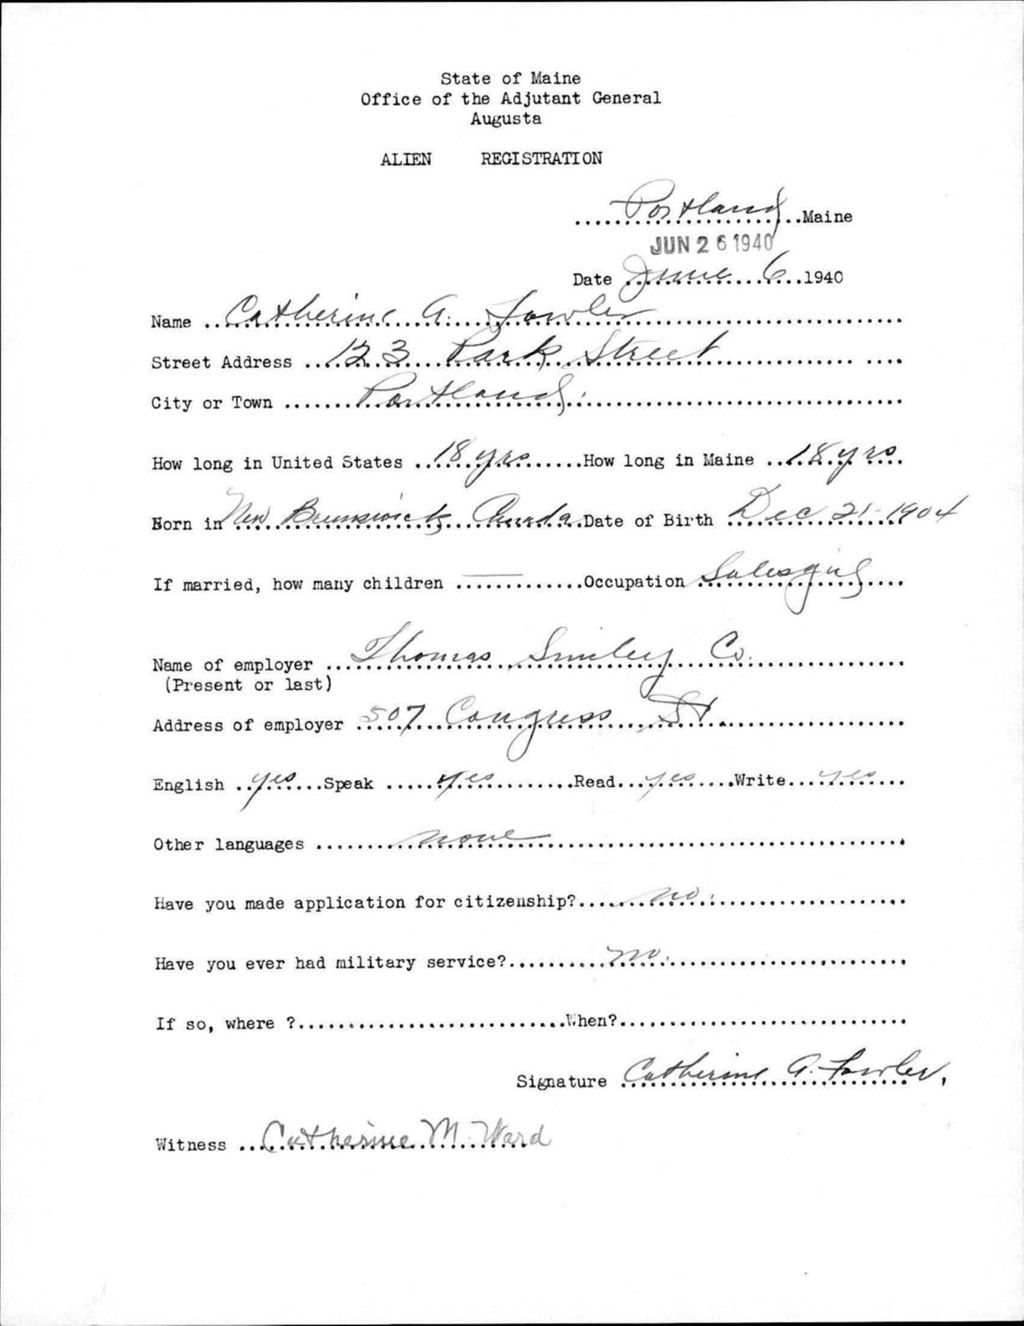 State of Maine
Office of the Adjutant General
Augusta
ALIEN REGISTRATION
Portland Maine
JUN 26 1940
Date June 6 1940
Name Catherine A. Fowler
Street Address 123 Park Street
City or Town Portland
How long in United States 18 yrs How long in Maine 18 yrs
Born in New Brunswick Canada Date of Birth Dec 21 - 1904
If married, how many children —— Occupation Salesgirl
Name of employer Thomas Smiley Co.
(Present or last)
Address of employer 507 Congress St.
English yes Speak yes Read yes Write yes
Other languages none
Have you made application for citizenship? no.
Have you ever had military service? no.
If so, where ? When?
Signature Catherine A. Fowler.
Witness Catherine M. Ward